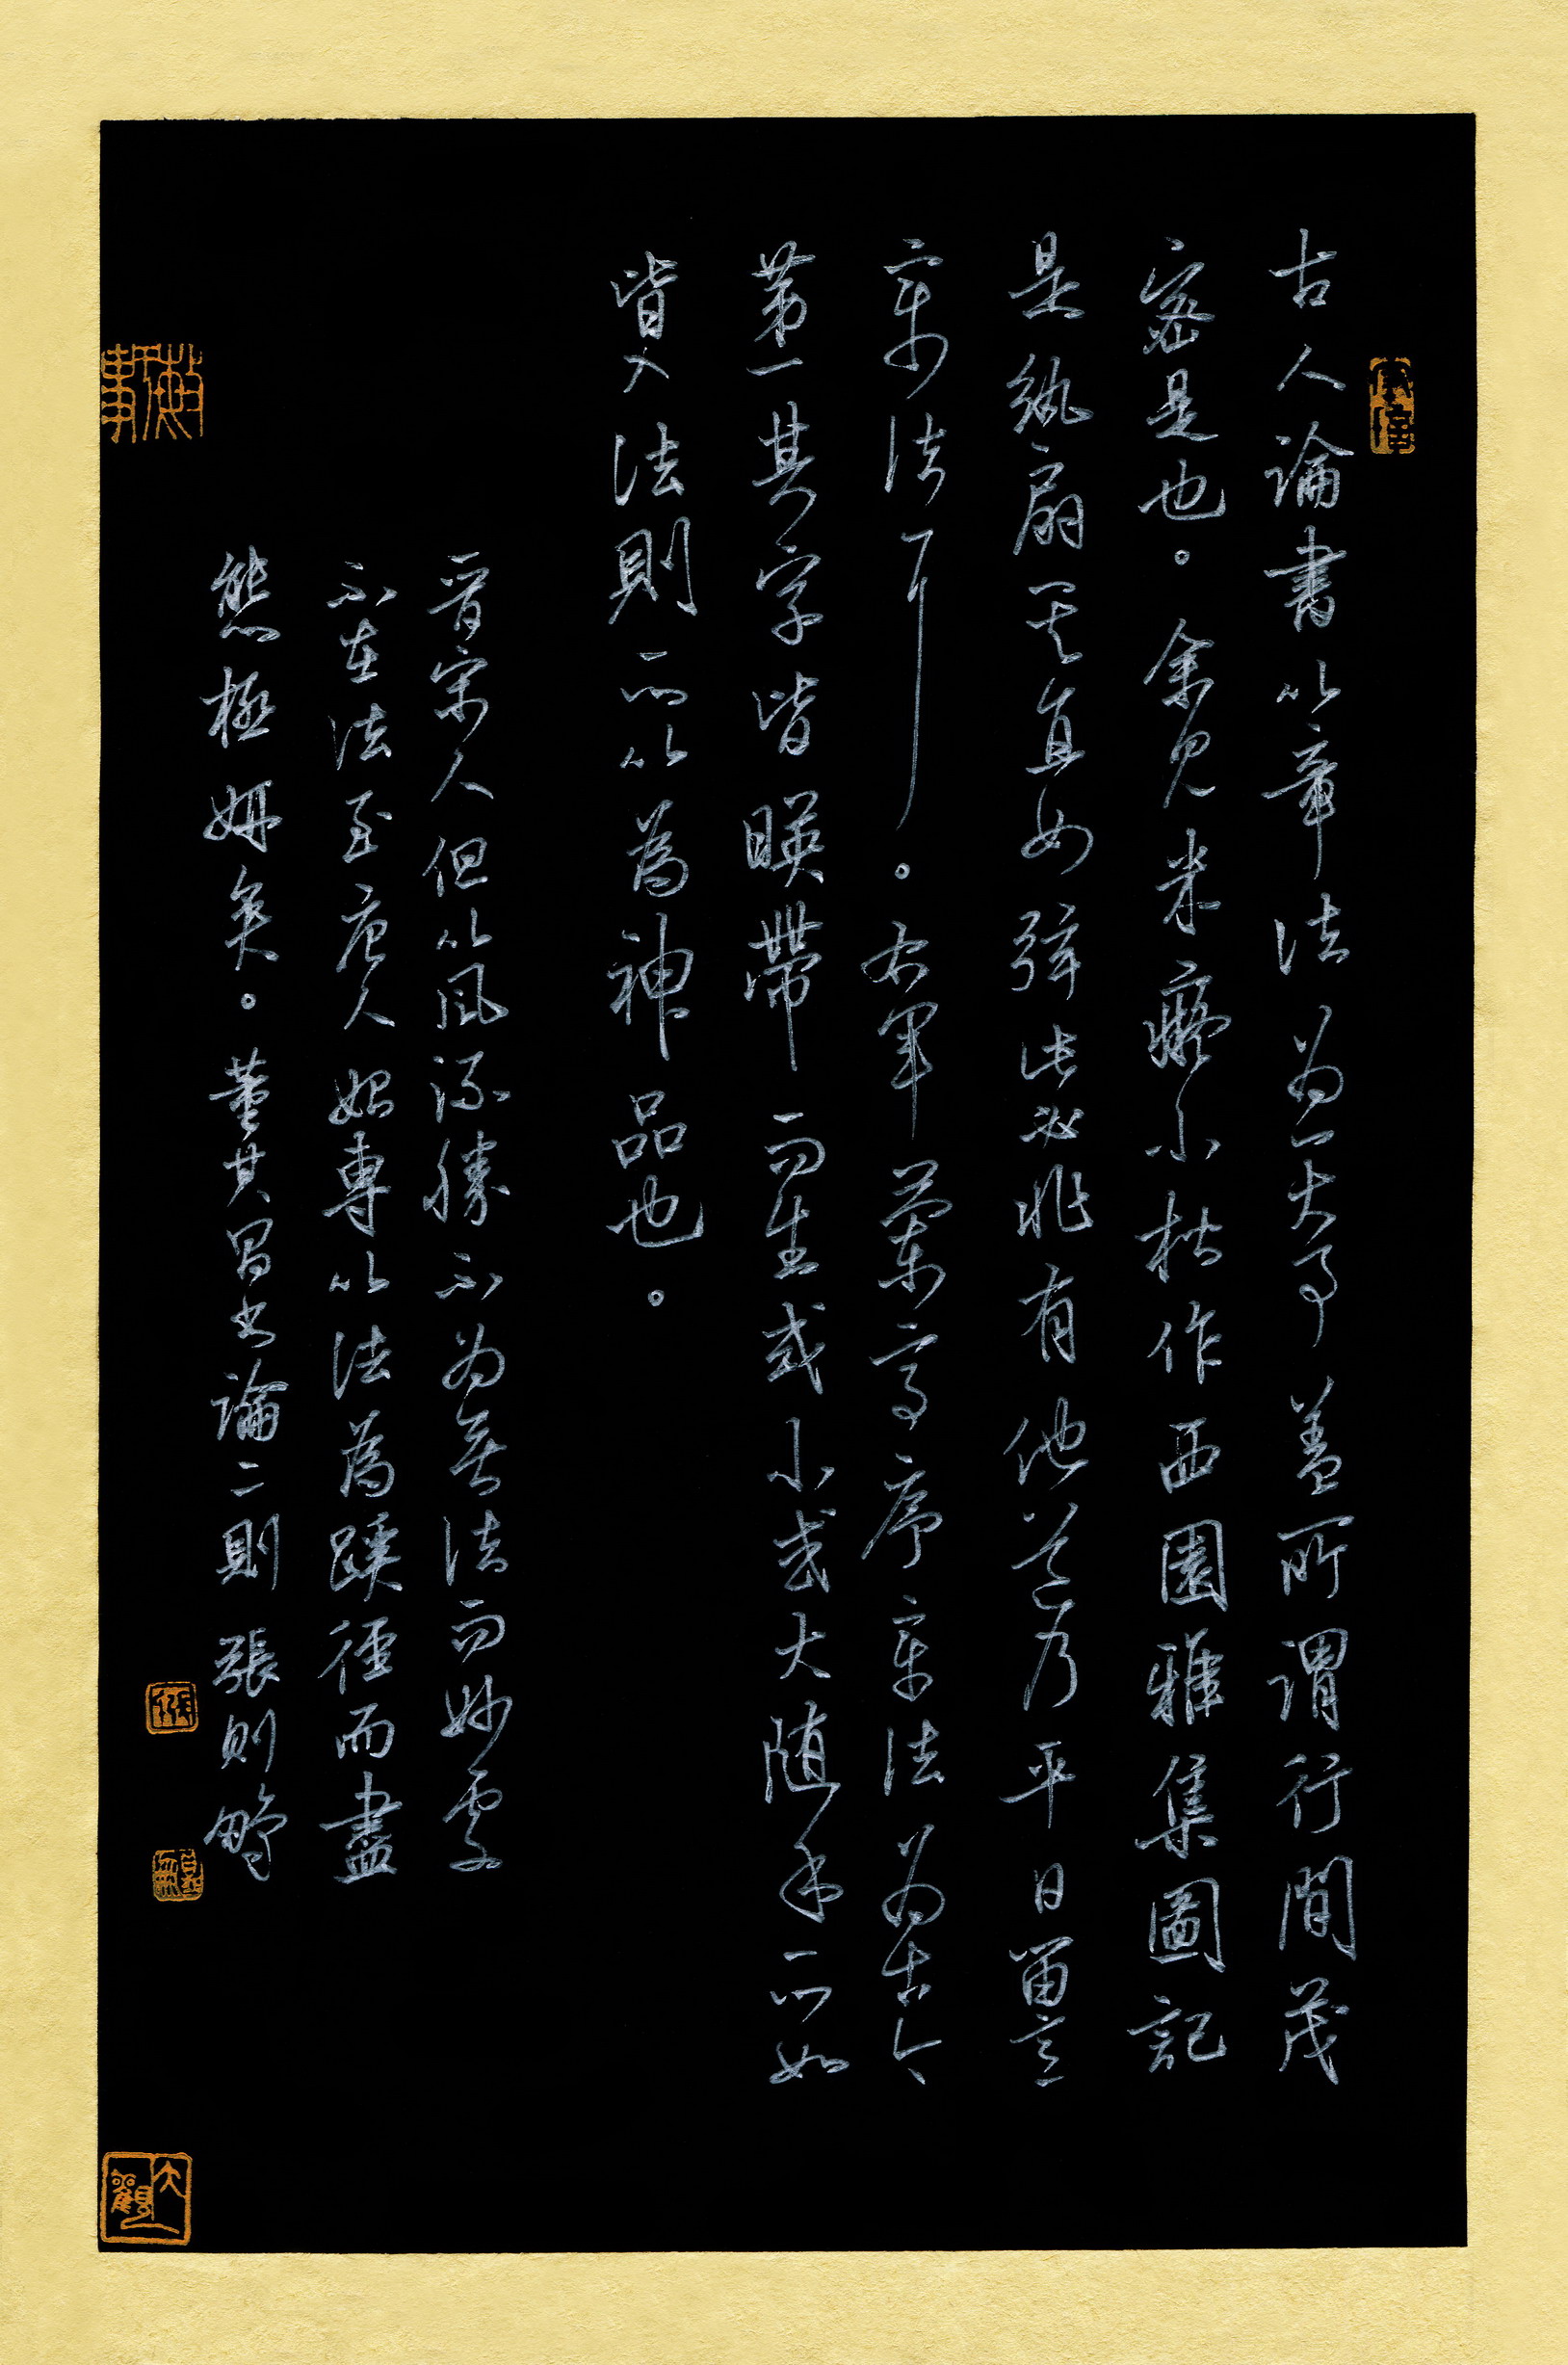 古人論書以章法为一大事盖所謂行間茂
密是也。余見米癡小楷作西園雅集圖記
是紈扇其直如弦此必非有他道乃平日留意
章法耳。右軍蘭亭序章法为古今
第一其字皆暎帶而生或小或大随手所如
皆入法則所以為神品也。
晉宋人但以風流勝不为無法而妙處
不在法至唐人始專以法為蹊徑而盡
態極妍矣。董其昌书論二則 張則
大觀